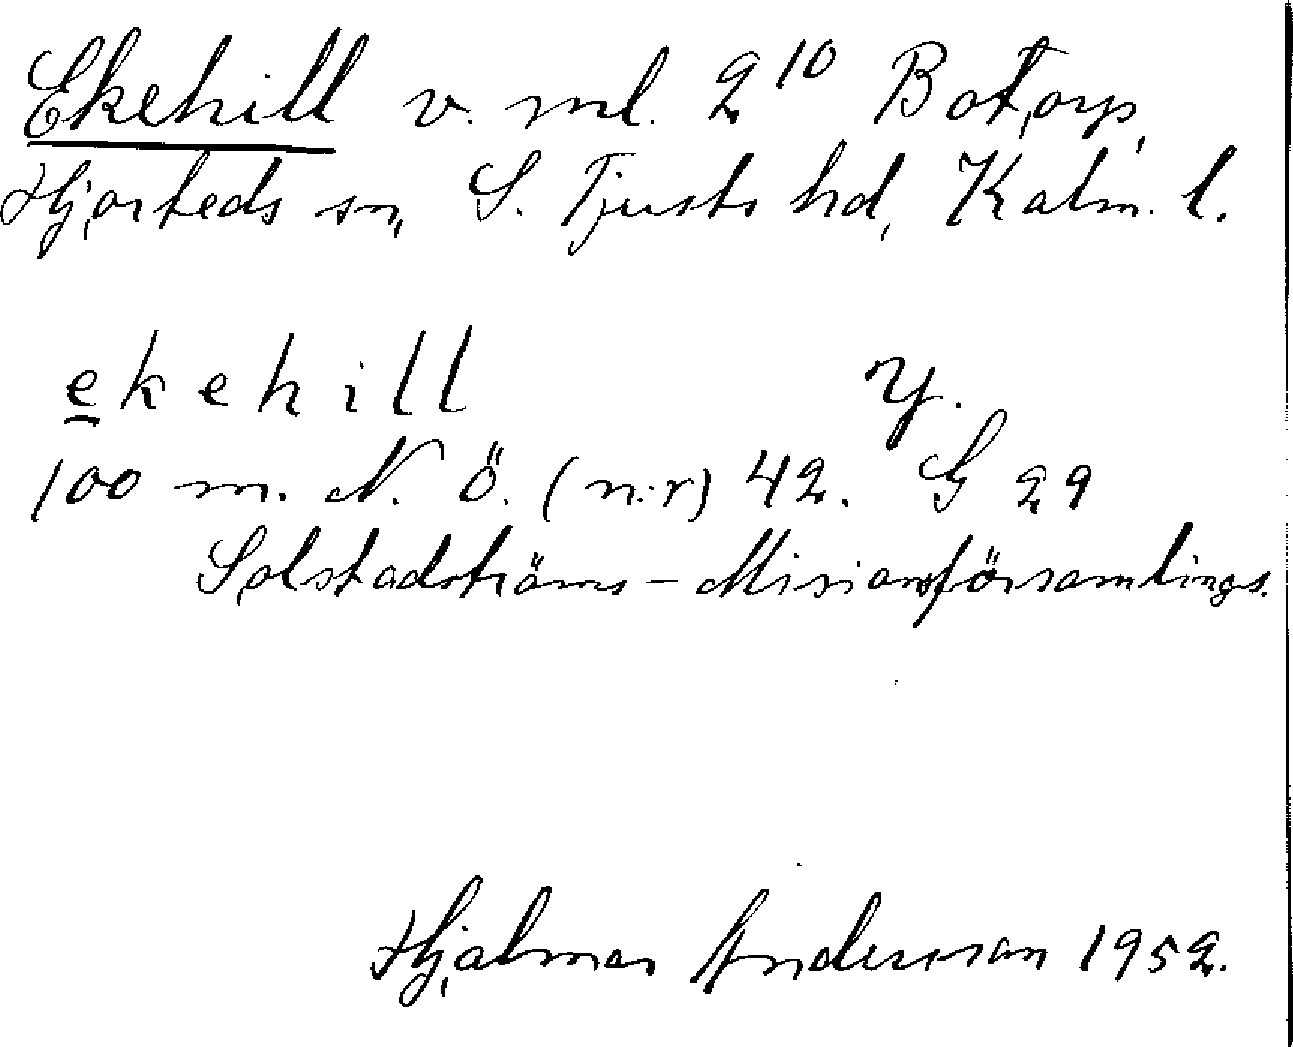 Ekehill v. ml. 2¹⁰ Botorp,
Hjorteds sn, S. Tjusts hd, Kalm. l.
ekehill Y.
100 m. N. Ö. (n:r) 42. G 29
Solstadströms – Misionsförsamlings.
Hjalmar Andersson 1952.